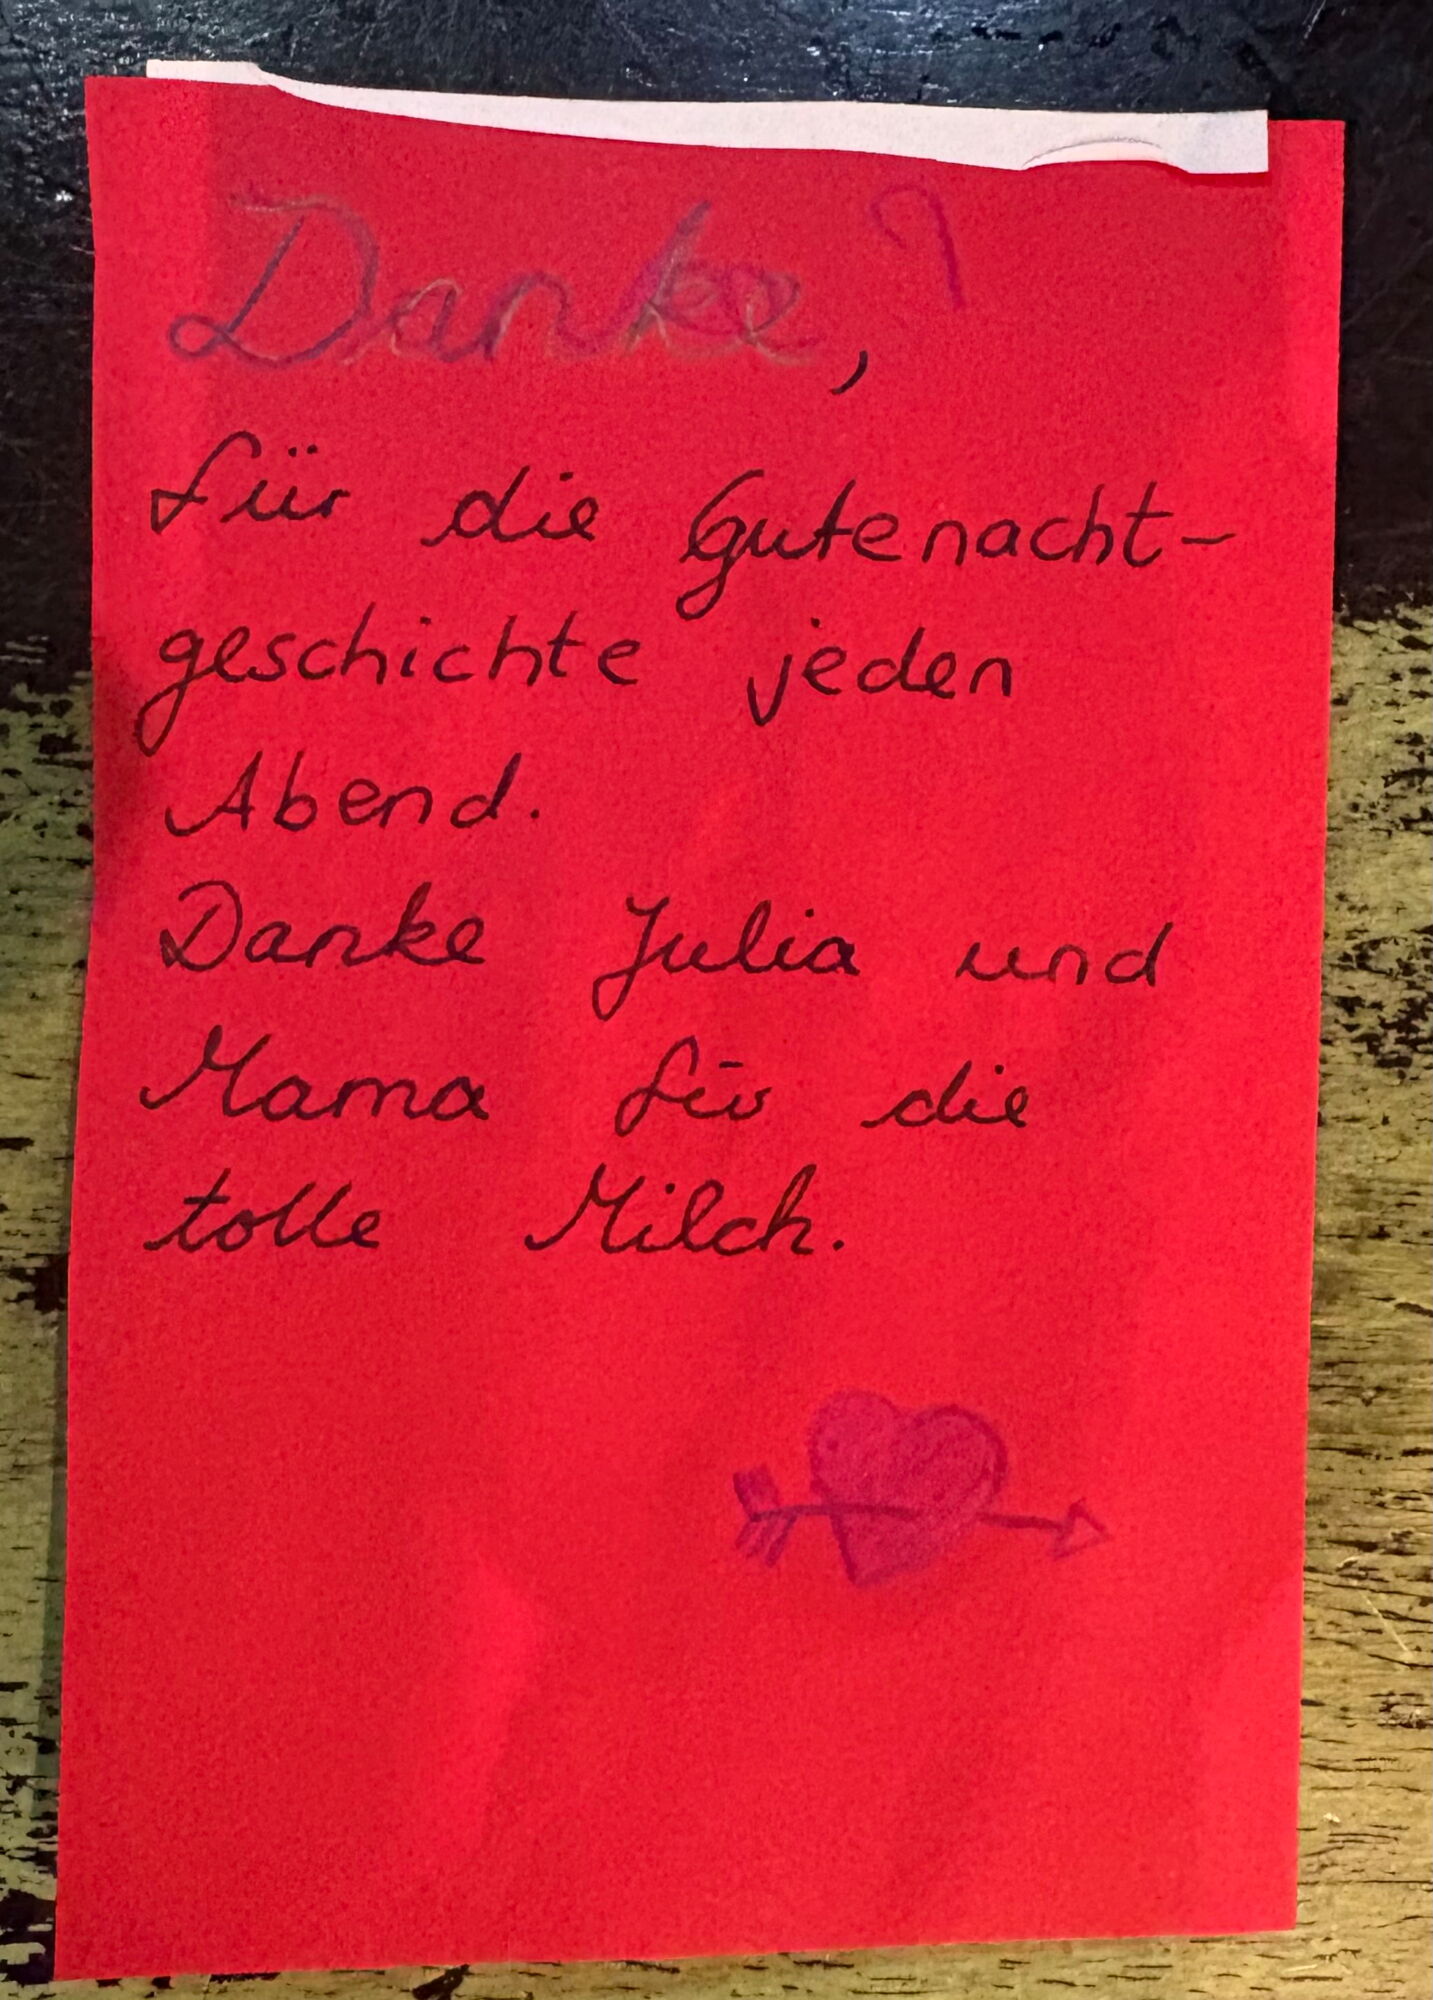 Danke,
für die Gutenacht-
geschichte jeden
Abend.
Danke Julia und
Mama für die
tolle Milch.